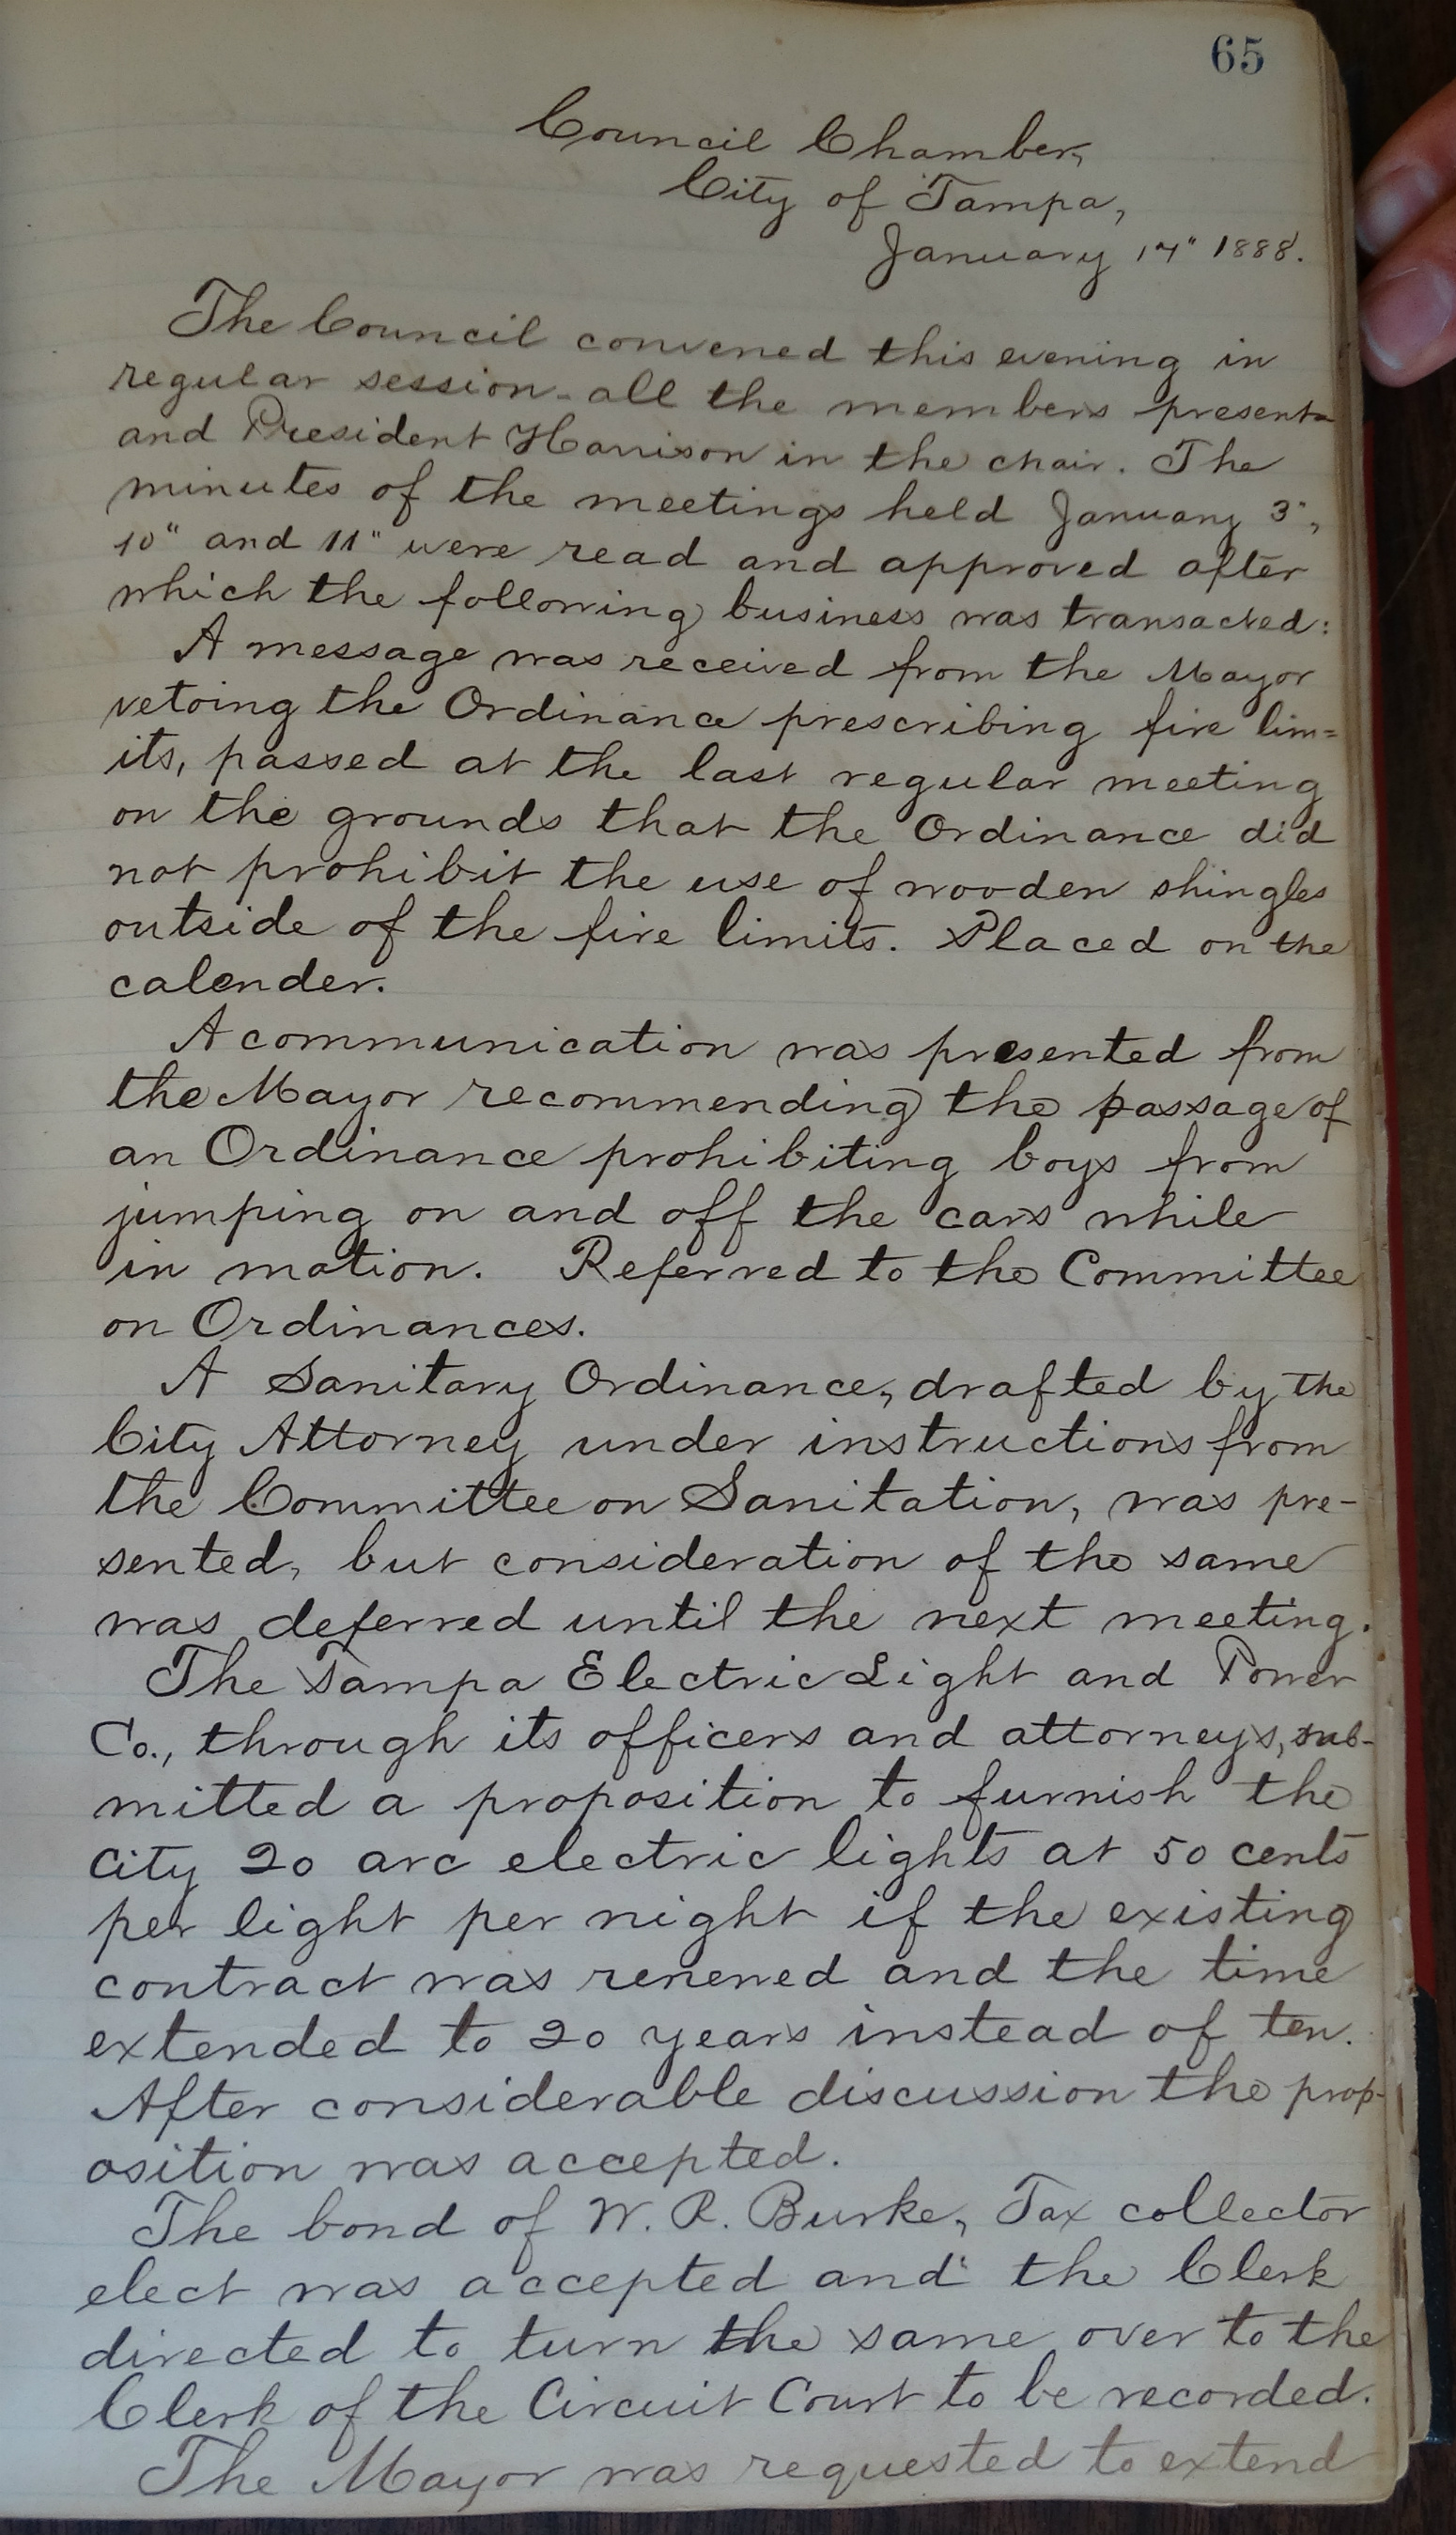 65
Council Chamber,
City of Tampa,
January 17" 1888.
The Council convened this evening in
regular session - all the members present
and President Harrison in the chair. The
minutes of the meetings held January 3",
10" and 11" were read and approved after
which the following business was transacted:
A message was received from the Mayor
vetoing the Ordinance prescribing fire lim=
its, passed at the last regular meeting
on the grounds that the Ordinance did
not prohibit the use of wooden shingles
outside of the fire limits. Placed on the
calender.
A communication was presented from
the Mayor recommending the passage of
an Ordinance prohibiting boys from
jumping on and off the cars while
in motion. Referred to the Committee
on Ordinances.
A Sanitary Ordinance, drafted by the
City Attorney under instructions from
the Committee on Sanitation, was pre-
sented, but consideration of the same
was deferred until the next meeting.
The Tampa Electric Light and Power
Co., through its officers and attorneys, sub-
mitted a proposition to furnish the
city 20 arc electric lights at 50 cents
per light per night if the existing
contract was renewed and the time
extended to 20 years instead of ten.
After considerable discussion the prop-
osition was accepted.
The bond of W. R. Burke, Tax collector
elect was accepted and the Clerk
directed to turn the same over to the
Clerk of the Circuit Court to be recorded.
The Mayor was requested to extend